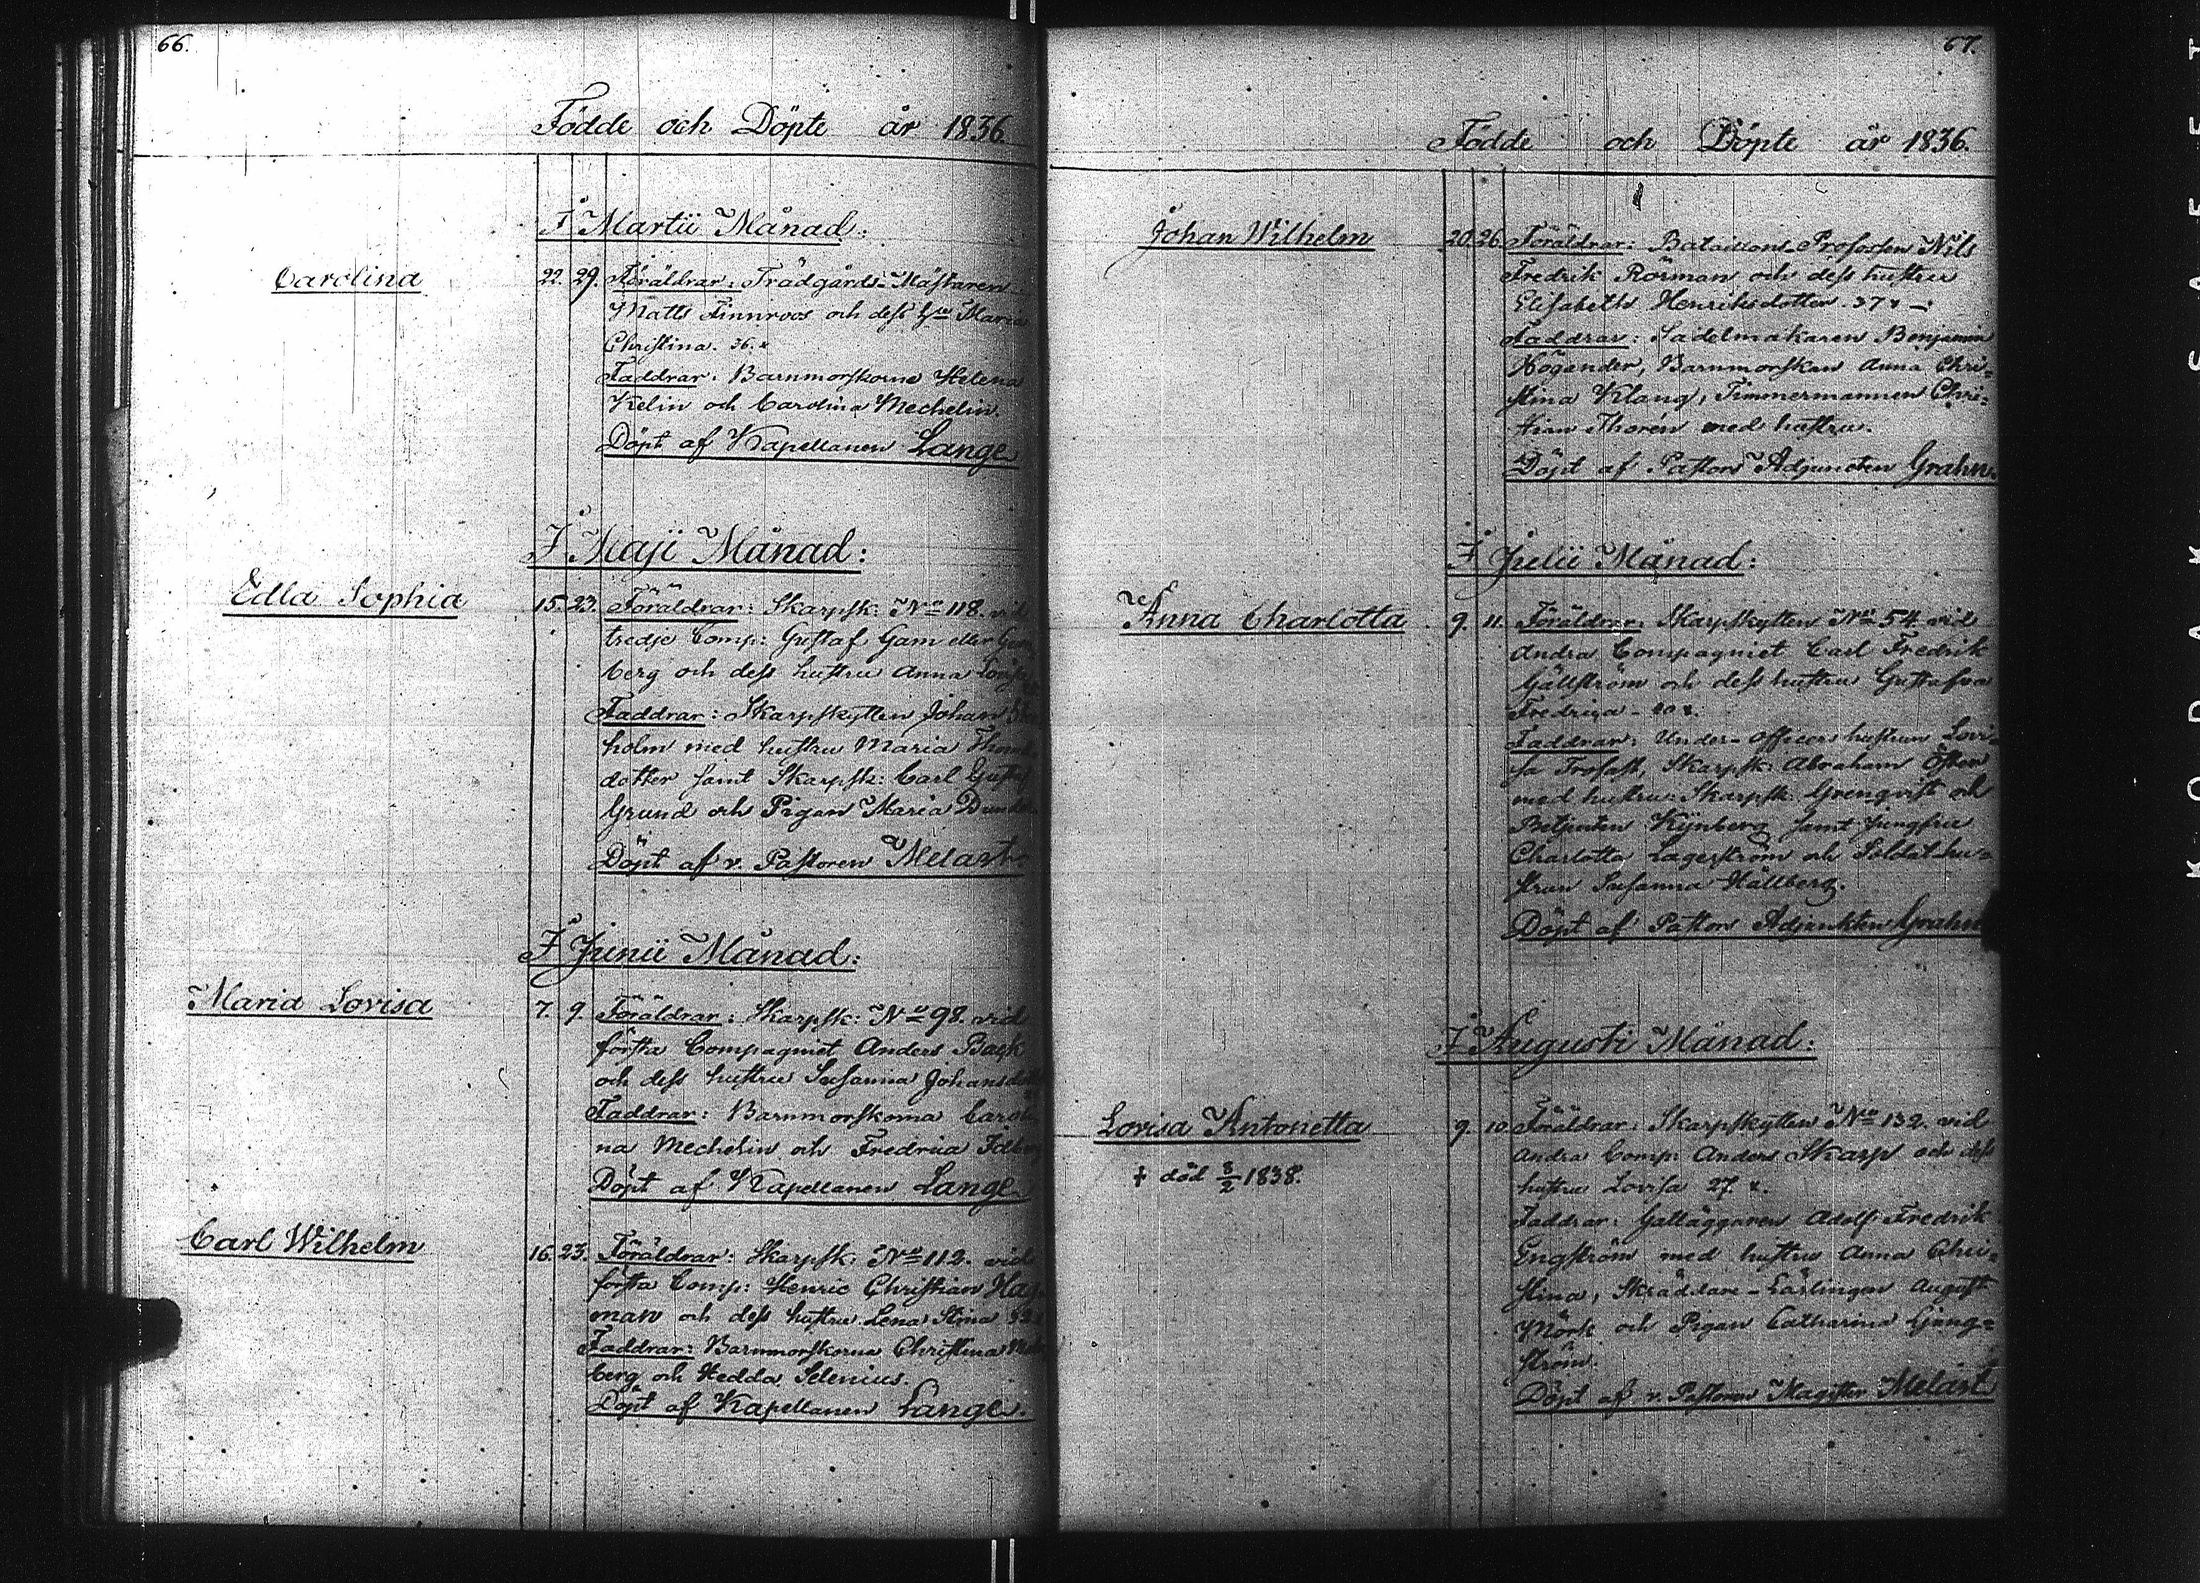 66.
Födde och Döpte år 1836.
I Martii Månad:
Carolina
22. 29. Föräldrar: Trädgårds-Mästaren
Matts Finnroos och dess h:u Maria
Christina. 36. ⨯
Faddrar: Barnmorskorne Helena
Kelin och Carolina Mechelin.
Döpt af Kapellanen Lange
I Maji Månad:
Edla Sophia
15. 23. Föräldrar: Skarpsk: No 118. vid
tredje Comp: Gustaf Gam eller
berg och dess hustru Anna Lovisa
Faddrar: Skarpskytten Johan
holm med hustru Maria
dotter samt Skarpsk: Carl Gustaf
Grund och Pigan Maria
Döpt af v. Pastoren Melart
I Junii Månad:
Maria Lovisa
7. 9. Föräldrar: Skarpsk: No 98. vid
första Compagniet Anders Back
och dess hustru Susanna
Faddrar: Barnmorskorna Caroli
na Mechelin och Fredrica
Döpt af Kapellanen Lange
Carl Wilhelm
16. 23. Föräldrar: Skarpsk: No 112. vid
första Comp: Henric Christian
man och dess hustru Lena Stina
Faddrar: Barnmorskorna Christina
berg och Hedda Selenius.
Döpt af Kapellanen Lange.
67.
Födde och Döpte år 1836.
Johan Wilhelm
20. 26. Föräldrar: Bataillons-Profossen Nils
Fredrik Rörman och dess hustru
Elisabeth Henriksdotter. 37 ⨯ –:
Faddrar: Sadelmakaren Benjamin
Högander, Barnmorskan Anna Chri=
stina Klang, Timmermannen Chri=
stian Thorén med hustru.
Döpt af Pastors Adjuncten Grahn.
I Julii Månad:
Anna Charlotta
9. 11. Föräldrar: Skarpskytten No 54 vid
Andra Compagniet Carl Fredrik
Gällström och dess hustru Gustafva
Fredrica –
Faddrar: Under-officers hustrun Lovi=
sa Trofast, Skarpsk: Abraham Östen
med hustru: Skarpsk: Grenqvist och
Betjenten Kynberg samt Jungfru
Charlotta Lagerström och Soldat hu=
strun Susanna Hällberg.
Döpt af Pastors Adjunkten Grahn
I Augusti Månad:
Lovisa Antonetta
† död 3/2 1838.
9. 10. Föräldrar: Skarpskytten No 132. vid
andra Comp: Anders Skarp och dess
hustru Lovisa 27. ⨯.
Faddrar: Gatläggaren Adolf Fredrik
Engström med hustru Anna Chri=
stina, Skräddare-Lärlingen August
Mörk och Pigan Catharina Ljung=
ström.
Döpt af v. Pastoren Magister Melart
KODAK SAFET